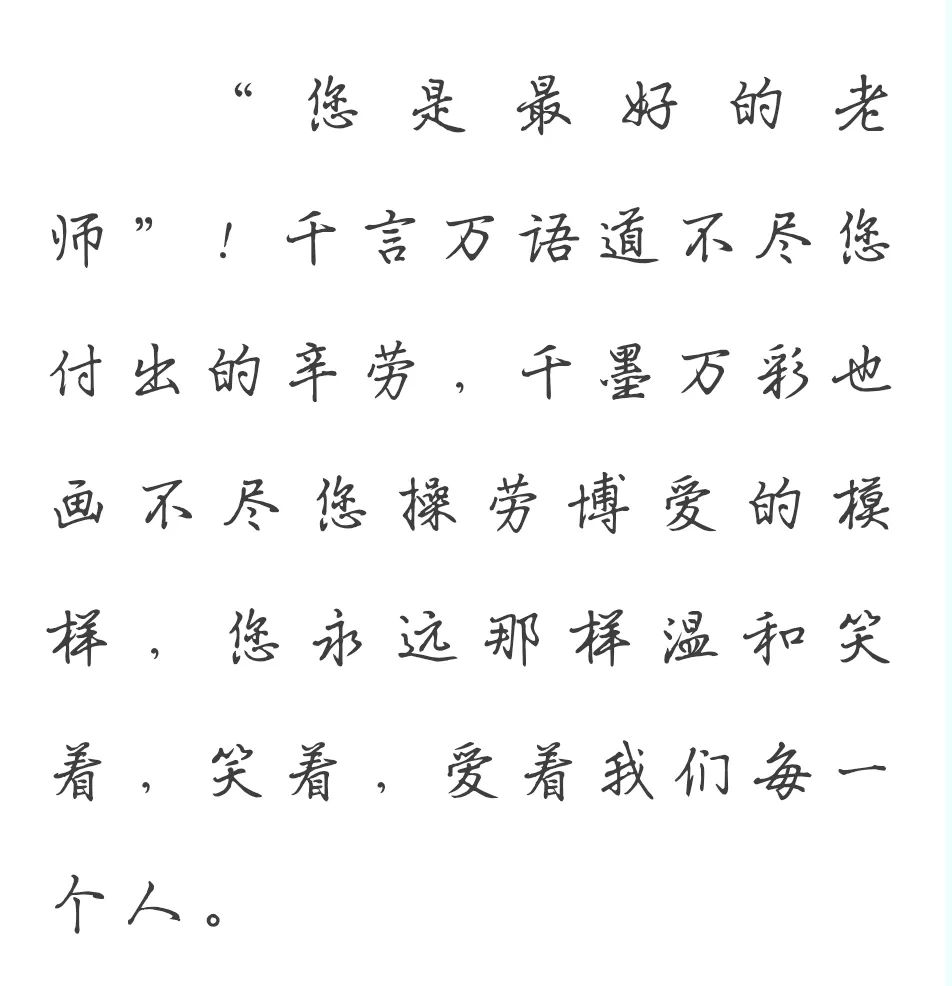 “您是最好的老
师”！千言万语道不尽您
付出的辛劳，千墨万彩也
画不尽您操劳博爱的模
样，您永远那样温和笑
着，笑着，爱着我们每一
个人。